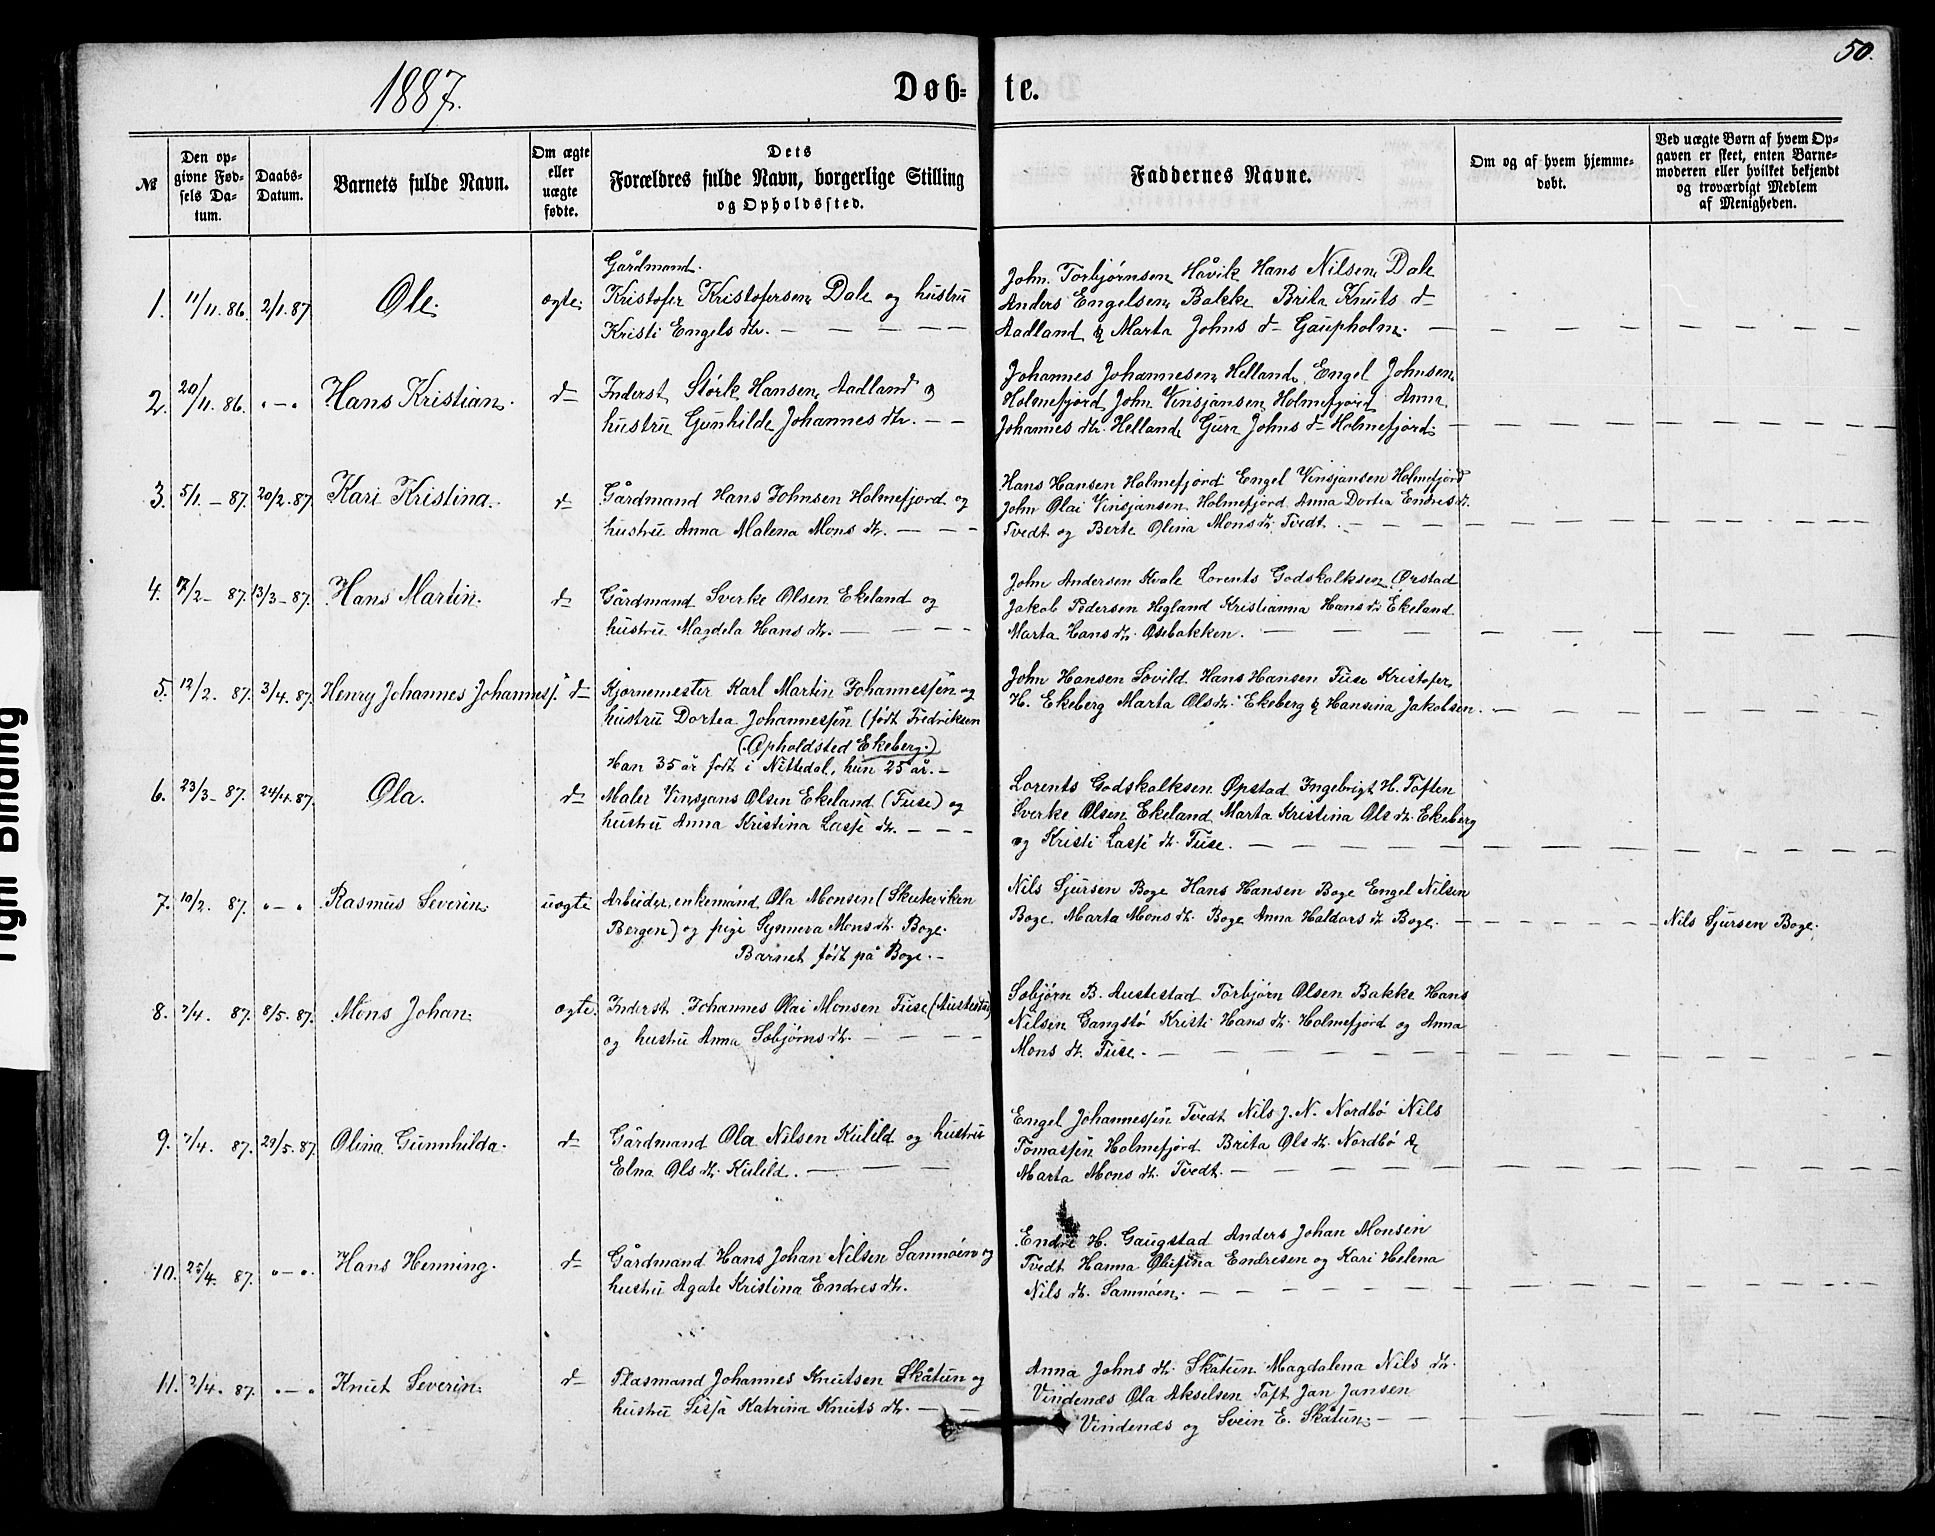 50.
1887.
Døb-te.
№
Den opgivne Fødsels Datum.
Daabs-Datum.
Barnets fulde Navn.
Om ægte eller uægte fødte.
Dets Forældres fulde Navn, borgerlige Stilling og Opholdssted.
Faddernes Navne.
Om og af hvem hjemmedøbt.
Ved uægte Børn af hvem Opgaven er skeet, enten Barnemoderen eller hvilket bekjendt og troværdigt Medlem af Menigheden.
1. 11/11. 86. 2/1. 87. Ole. ægte.
Gårdmand.
Kristofer Kristofersen Dale og hustru
Kristi Engels dtr.
John Torbjørnsen Håvik Hans Nilsen Dale
Anders Engelsen Bakke Brita Knuts d–
Aadland & Marta Johns d– Gaupholm.
2. 20/11. 86. „ – „ Hans Kristian. d–
Inderst Størk Hansen Aadland og
hustru Gunhilde Johannes dtr.
Johannes Johannesen Helland, Engel Johnsen
Holmefjord John Vinsjansen Holmefjord Anna
Johannes dtr. Helland Gura Johns d– Holmefjord.
3. 5/1. – 87. 20/2. 87. Kari Kristina. d–
Gårdmand Hans Johnsen Holmefjord og
hustru Anna Malena Mons dtr.
Hans Hansen Holmefjord Engel Vinsjansen Holmefjord
John Olai Vinsjansen Holmefjord Anna Dortea Endres dtr.
Tvedt og Berte Olina Mons dtr. Tvedt.
4. 7/2 – 87. 13/3 – 87. Hans Martin. d–
Gårdmand Sverke Olsen Ekeland og
hustru Magdela Hans dtr.
John Andersen Kvale Lorents Godskalksen Ørstad
Jakob Pedersen Hegland Kristianna Hans dtr Ekeland
Marta Hans dtr. Osebakken.
5. 12/2. 87. 3/4. 87. Henry Johannes Johanness. d–
Kjørnemester Karl Martin Johannessen og
hustru Dortea Johannessen (født Fredriksen
(Opholdsted Ekeberg.)
Han 35 år født i Nittedal, hun 25 år.–
John Hansen Lovild Hans Hansen Fuse Kristofer
H. Ekeberg Marta Ols dtr. Ekeberg & Hansina Jakobsen.
6. 23/3 – 87. 24/4. 87. Ola. d–
Maler Vinsjans Olsen Ekeland (Fuse) og
hustru Anna Kristina Lasse dtr.
Lorents Godskalksen Øpstad Ingebrigt H. Toften
Sverke Olsen Ekeland Marta Kristina Ols dtr. Ekeberg
og Kristi Lasse dtr. Fuse.
7. 10/2. 87. „ – „ Rasmus Severin. uægte
Arbeider, enkemand Ola Monsen (Skuteviken
Bergen) og pige Synneva Mons dtr. Boge.
Barnet født på Boge.–
Nils Sjursen Boge Hans Hansen Boge Engel Nilsen
Boge Marta Mons dtr. Boge Anna Haldors dtr Boge.
Nils Sjursen Boge.
8. 7/4. 87. 8/5. 87. Mons Johan. ægte.
Inderst Johannes Olai Monsen Fuse (Austestad)
og hustru Anna Sobjørns dtr.
Sobjørn B. Austestad Torbjørn Olsen Bakke Hans
Nilsen Gangstø Kristi Hans dtr. Holmefjord og Anna
Mons dtr. Fuse.
9. 7/4. 87. 29/5. 87. Olina Gunnhilda. d–
Gårdmand Ola Nilsen Kulild og hustru
Elna Ols dtr. Kulild.
Engel Johannessen Tvedt Nils J. N. Nordbø Nils
Tomassen Holmefjord Brita Ols dtr. Nordbø &
Marta Mons dtr. Tvedt.
10. 25/4. 87. „ – „ Hans Henning. d–
Gårdmand Hans Johan Nilsen Samnøen og
hustru Agate Kristina Endres dtr.
Endre H. Gaugstad Anders Johan Monsen
Tvedt Hanna Olefina Endresen og Kari Helena
Nils dtr. Samnøen.
11. 2/4. 87. „ – „ Knut Severin. d–
Plasmand Johannes Knutsen Skåtun og
hustru Sisja Katrina Knuts dtr.
Anna Johns dtr. Skåtun Magdalena Nils dtr.
Vindenæs Ola Akselsen Toft Jan Jansen
Vindenæs og Svein E. Skåtun.
Tight Binding